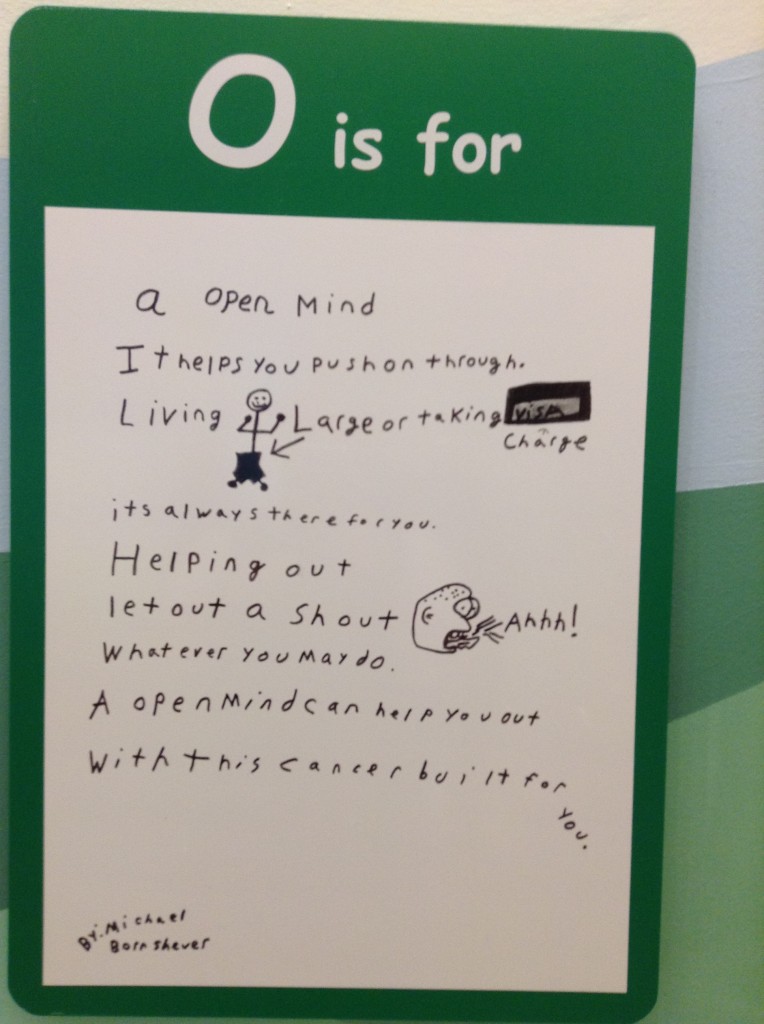 O is for
a open Mind
It helps you push on through.
Living Large or taking VISA
Charge
its always there for you.
Helping out
let out a shout Ahhh!
Whatever you May do.
A open Mind can help you out
With this cancer built for
you.
By: Michael